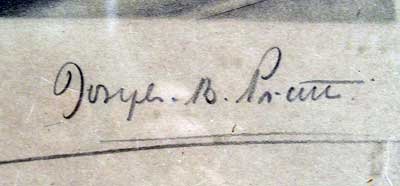 Joseph. B. Pratt.